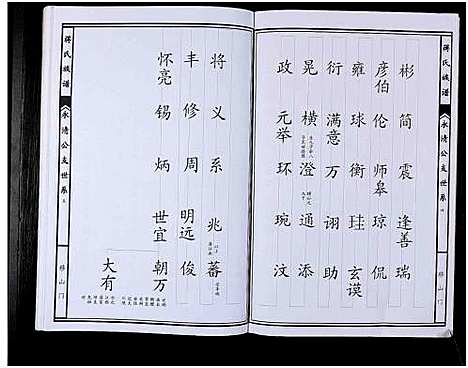 蒋氏族谱
永清公支世系
移山门
彬 简 震 逢善 瑞
彦伯 伦 师皋 琼 侃
雍 球 衡 珪 玄谟
衍 满意 万 诩 助
晃 横 澄 通 添
政 元举 环 琬 汶
将 义 系 兆 蕃
丰 修 周 明远 俊
怀亮 锡 炳 世宜 朝万
大有
蒋氏族谱
永清公支世系
移山门